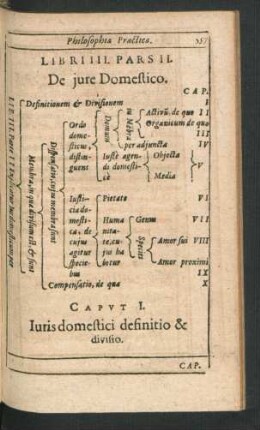 Philosophia Practica.
LIBRI IIII. PARS II.
De jure Domestico.
CAP.
Definitionem & Divisionem I
LIB. IIII. Pars II Explicatur
Membra, in quæ divisum est, & sunt
Dispensatio, cujus membra sunt
Ordo domesticus, distinguens
Domum in
Membra
Activũ, de quo II
Organicum de quo III
per adjuncta IV
Juste agendi domestici
Objecta
Media
V
Iusticia domestica, de cujus agitur speciebus
Pietate VI
Humanitate, cujus habetur
Genus VII
Species
Amor sui VIII
Amor proximi IX
Compensatio, de qua X
CAPVT I.
Iuris domestici definitio &
divisio.
CAP.